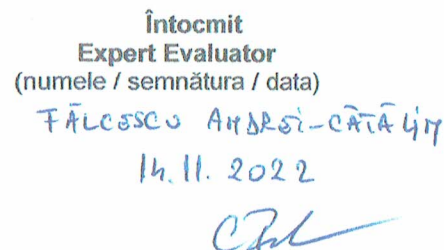 Întocmit
Expert Evaluator
(numele / semnătura / data)
FĂLCESCU ANDREI-CĂTĂLIN
14.11.2022